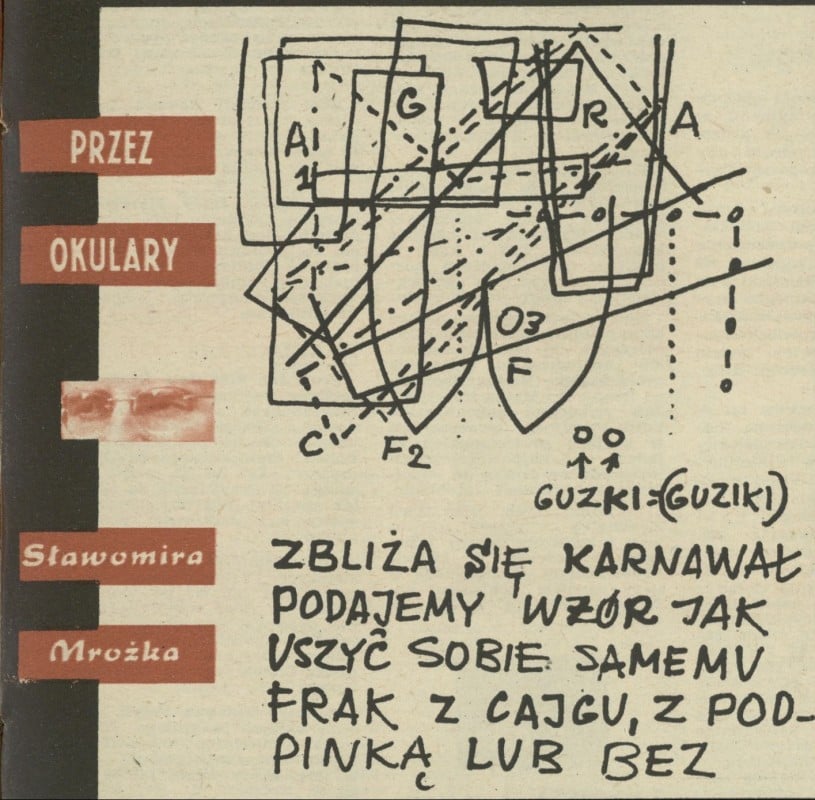 PRZEZ
OKULARY
Sławomira
Mrożka
G
R
A
A
1
O3
F
C
F2
GUZKI=(GUZIKI)
ZBLIŻA SIĘ KARNAWAŁ
PODAJEMY WZÓR JAK
USZYĆ SOBIE SAMEMU
FRAK Z CAJGU, Z POD-
PINKĄ LUB BEZ